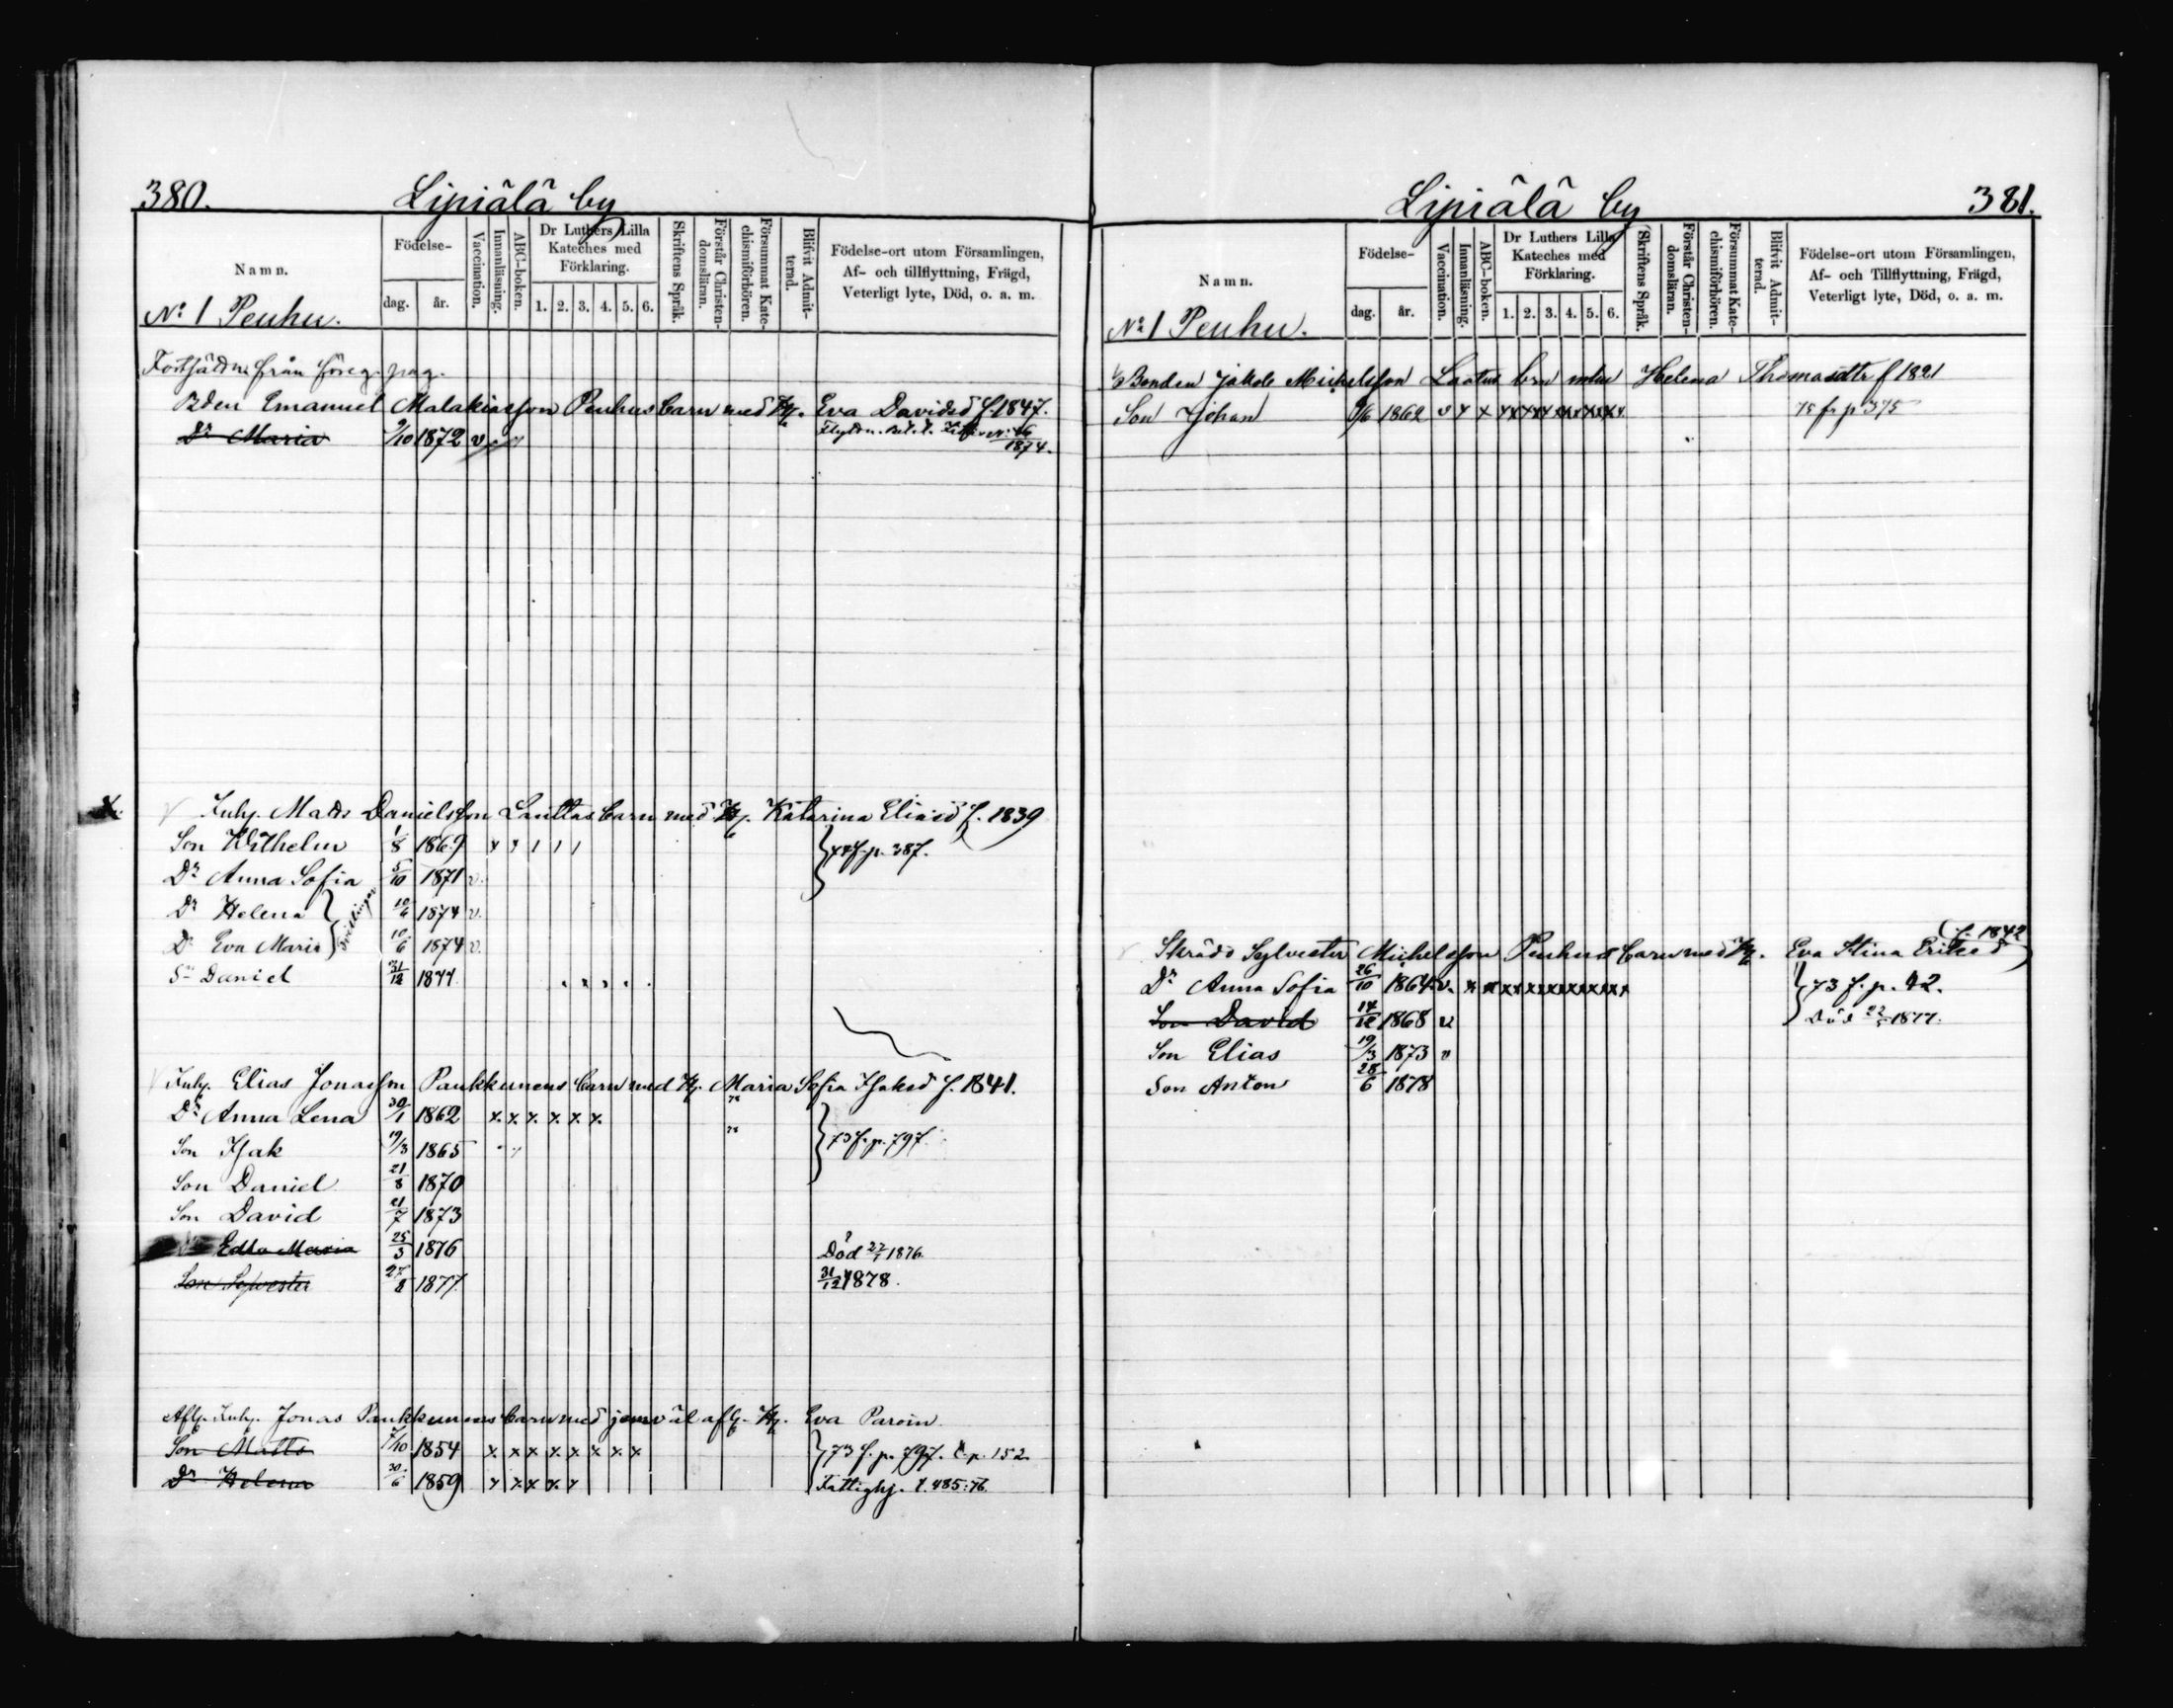 380. Lipiälä by
Namn. Födelse- dag. år. Vaccination. Innanläsning. ABC-boken. Dr Luthers Lilla Kateches med Förklaring. 1. 2. 3. 4. 5. 6. Skriftens Språk. Förstår Christendomsläran. Försummat Katechismiförhören. Blifvit Admitterad. Födelse-ort utom Församlingen, Af- och tillflyttning, Frägd, Veterligt lyte, Död, o. a. m.
No 1 Peuhu.
från föreg. pag.
Bden Emanuel Malakiasson Peuhus barn med H. Eva Davidsd f. 1847.
Dr Maria 9/10 1872 v
1874.
Inhy. Matts Danielsson Lauttas barn med H. Katarina Eliasd f. 1839
Son Wilhelm 1/8 1869 x
f. p. 387.
Dr Anna Sofia 5/10 1871 v.
Dr Helena 10/6 1874 v.
Tvillingar
Dr Eva Maria 10/6 1874 v.
Sn Daniel 31/12 1877
Inhy. Elias Jonasson Paukkunens barn med H. Maria Sofia Isaksd f. 1841.
Dr Anna Lena 30/1 1862 x x x x x x
Son Isak 19/3 1865
73 f. p. 797.
Son Daniel 21/8 1870
Son David 21/7 1873
Edla Maria 25/3 1876 Död 1876.
Son Sylvester 27/8 1877 31/12 1878.
Afl. Inhy. Jonas Paukkunens barn med jemväl afl. H. Eva Paroin
Son Matts 7/10 1854 x x x x x x x x 73 f. p. 797. p. 152
Dr Helena 30/6 1859 x x x x x Fattighj. 485:76.
Lipiälä by 381.
Namn. Födelse- dag. år. Vaccination. Innanläsning. ABC-boken. Dr Luthers Lilla Kateches med Förklaring. 1. 2. 3. 4. 5. 6. Skriftens Språk. Förstår Christendomsläran. Försummat Katechismiförhören. Blifvit Admitterad. Födelse-ort utom Församlingen, Af- och Tillflyttning, Frägd, Veterligt lyte, Död, o. a. m.
No 1 Peuhu.
Bonden Jakob Michelsson Lautas brn m hu Helena Thomasdtr f 1821
Son Johan 9/6 1862 v x x x x x x x x x x x x 75 fr p 375
f. 1842
Skrädd Sylvester Michelsson Peuhus barn med H. Eva Stina Eriksd
Dr Anna Sofia 26/10 1864 v. x x x x x x x x x x x x 73 f. p. 42.
Son David 14/12 1868 v Död 1877.
Son Elias 19/3 1873 v
Son Anton 28/6 1878